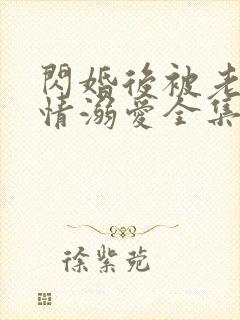 閃婚後被老
情溺愛全集
徐紫菀